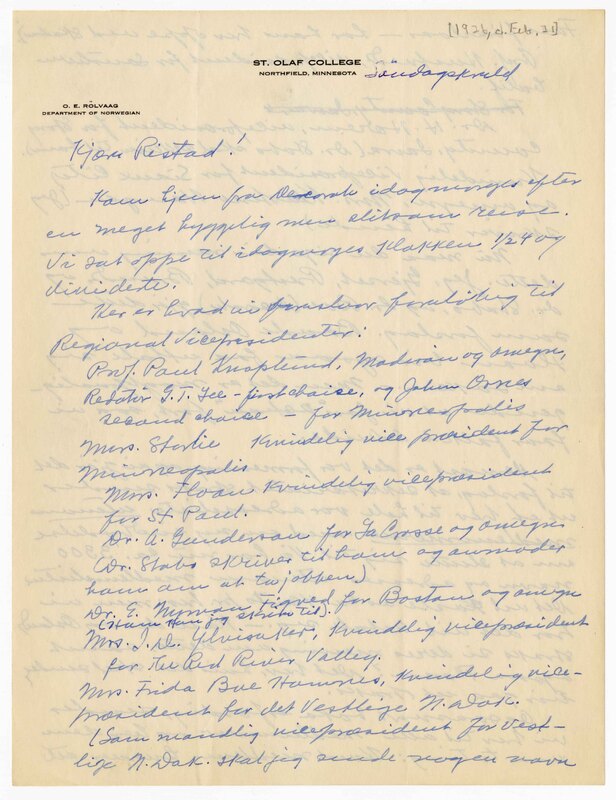 [1926, c. Feb. 21]
ST. OLAF COLLEGE
NORTHFIELD, MINNESOTA
Söndagskveld
O. E. RÖLVAAG
DEPARTMENT OF NORWEGIAN
Kjære Ristad!
Kom hjem fra Decorah idagmorges efter
en meget hyggelig men slitsom reise.
Vi sat oppe til idagmorges klokken 1/2 4 og
dividerte.
Her er hvad vi foreslaar foreløbig til
Regional Vicepresidenter:
Prof. Paul Knaplund, Madison og omegn,
Redatör G. T. Lee - first choise, og John Ornes
second choise - for Minneapolis
Mrs. Storlie Kvindelig vice præsident for
Minneapolis
Mrs. Floan Kvindelig vicepræsident
for St. Paul.
Dr. A. Gundersen for La Crosse og omegn
(Dr. Stabo skriver til ham og anmoder
ham om at ta jobben.)
Dr. E. Nyman for Boston og omegn
(Ham har jeg skrevet til).
Mrs. J. D. Ylvisaker, Kvindelig vicepræsident
for The Red River Valley.
Mrs. Frida Bue Homnes, Kvindelig vice-
præsident for det Vestlige N. Dak.
(Som mandlig vicepræsident for vest-
lige N. Dak. skal jeg sende nogen navn